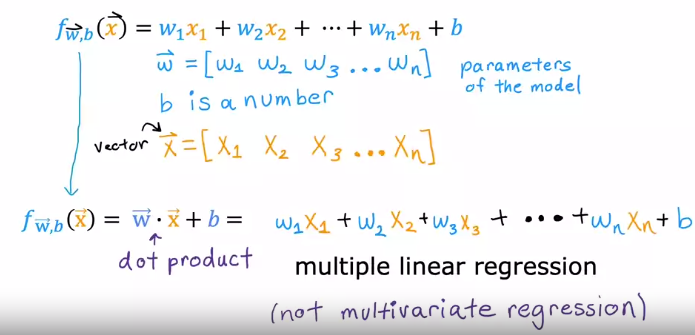 f w⃗,b(x⃗) = w₁x₁ + w₂x₂ + ⋯ + wₙxₙ + b
w⃗ = [w₁ w₂ w₃ ... wₙ] parameters
of the model
b is a number
vector x⃗ = [x₁ x₂ x₃ ... xₙ]
f w⃗,b(x⃗) = w⃗ · x⃗ + b = w₁x₁ + w₂x₂ + w₃x₃ + ⋯ + wₙxₙ + b
dot product
multiple linear regression
(not multivariate regression)